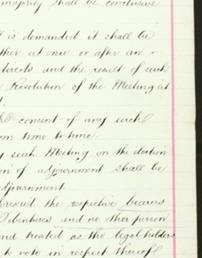 majority shall be conclusive
is demanded it shall be
either at once or after an
and the result of such
Resolution of the Meeting at
consent of any such
from time to time
such Meeting on the
of adjournment shall be
adjournment
the respective bearers
and no other person
and treated as the legal holders
to vote in respect thereof